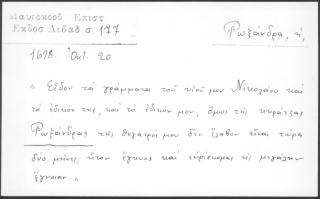 Μαυροκορδ Επιστ
Εκδοσ Λιβαδ σ. 177
Ρωξάνδρα, ἡ,
1698. Ὀκτ. 20
„ Εἶδον τὰ γράμματα τοῦ υἱοῦ μου Νικολάου καὶ
τὸ ἐδικόν της, καὶ τὸ ἐδικόν μου, ὅμως τῆς κυράτζας
Ρωξάνδρας τῆς θυγατρός μου δὲν ἔλαβον εἶναι τώρα
δύο μῆνες, ἦτον ἔγκυος καὶ εὑρίσκομαι εἰς μεγάλην
ἔγνοιαν. „